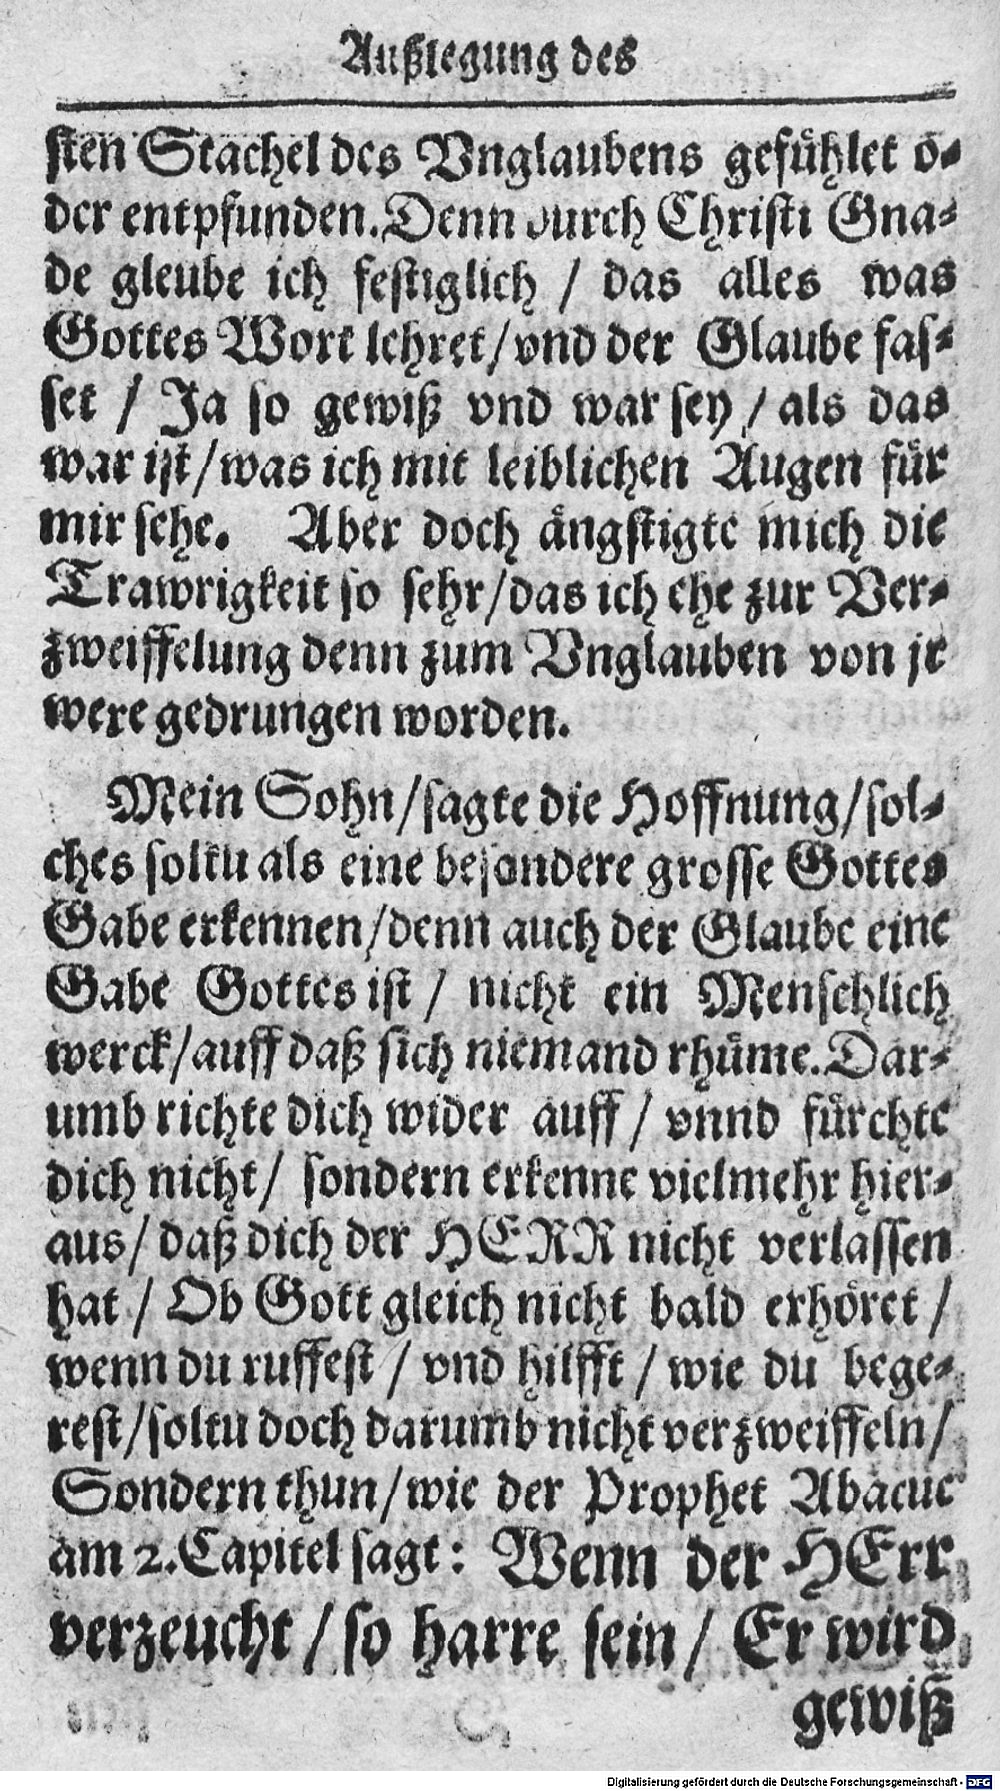 Außlegung des
sten Stachel des Vnglaubens gefühlet o-
der entpfunden. Denn durch Christi Gna-
de gleube ich festiglich / das alles was
Gottes Wort lehret / vnd der Glaube fas-
set / Ja so gewiß vnd war sey / als das
war ist / was ich mit leiblichen Augen für
mir sehe. Aber doch ängstigte mich die
Trawrigkeit so sehr / das ich ehe zur Ver-
zweiffelung denn zum Vnglauben von je
were gedrungen worden.
Mein Sohn / sagte die Hoffnung / sol-
ches soltu als eine besondere grosse Gottes
Gabe erkennen / denn auch der Glaube eine
Gabe Gottes ist / nicht ein Menschlich
werck / auff daß sich niemand rhüme. Dar-
umb richte dich wider auff / vnnd fürchte
dich nicht / sondern erkenne vielmehr hier-
aus / daß dich der HERR nicht verlassen
hat / Ob Gott gleich nicht bald erhöret /
wenn du ruffest / vnd hilfft / wie du bege-
rest / soltu doch darumb nicht verzweiffeln /
Sondern thun / wie der Prophet Abacuc
am 2. Capitel sagt: Wenn der HErr
verzeucht / so harre sein / Er wird
gewiß
Digitalisierung gefördert durch die Deutsche Forschungsgemeinschaft - DFG